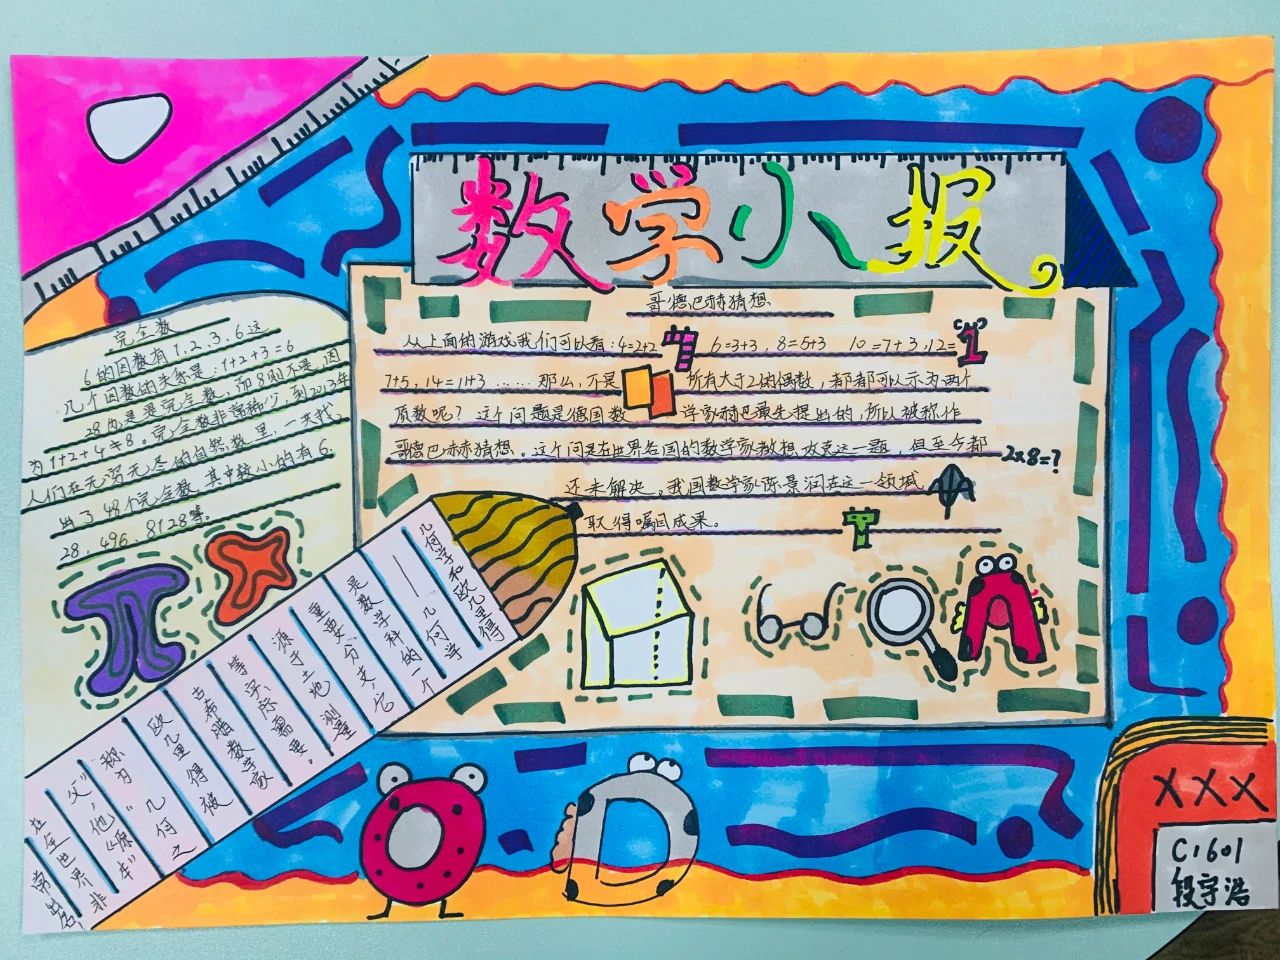 数学小报。
哥德巴赫猜想
从上面的游戏我们可以看:4=2+2 6=3+3,8=5+3 10=7+3,12=
7+5,14=11+3……那么,不是 所有大于2的偶数,都都可以示为两个
质数呢?这个问题是德国数 学家赫巴最先提出的,所以被称作
哥德巴赫猜想。这个问是在世界各国的数学家都想攻克这一题,但至今都
还未解决。我国数学家陈景润在这一领域
取得嘱目成果。
2×8=?
完全数
6的因数有1,2、3、6这
几个因数的关系是:1+2+3=6
28也是完全数,而8则不是,因
为1+2+4≠8。完全数非常稀少,到2013年
人们在无穷无尽的自然数里,一共找
出了48个完全数,其中较小的有6.
28、496、8128等。
π
几何学和欧几里得
——几何学
是数学科的一个
重要分支,它
源于土地测量
等实际需要。
古希腊数学家
欧几里得被
称为“几何之
父”,他《原本》
在全世界非
常出名!
XXX
C1601
段宇浩